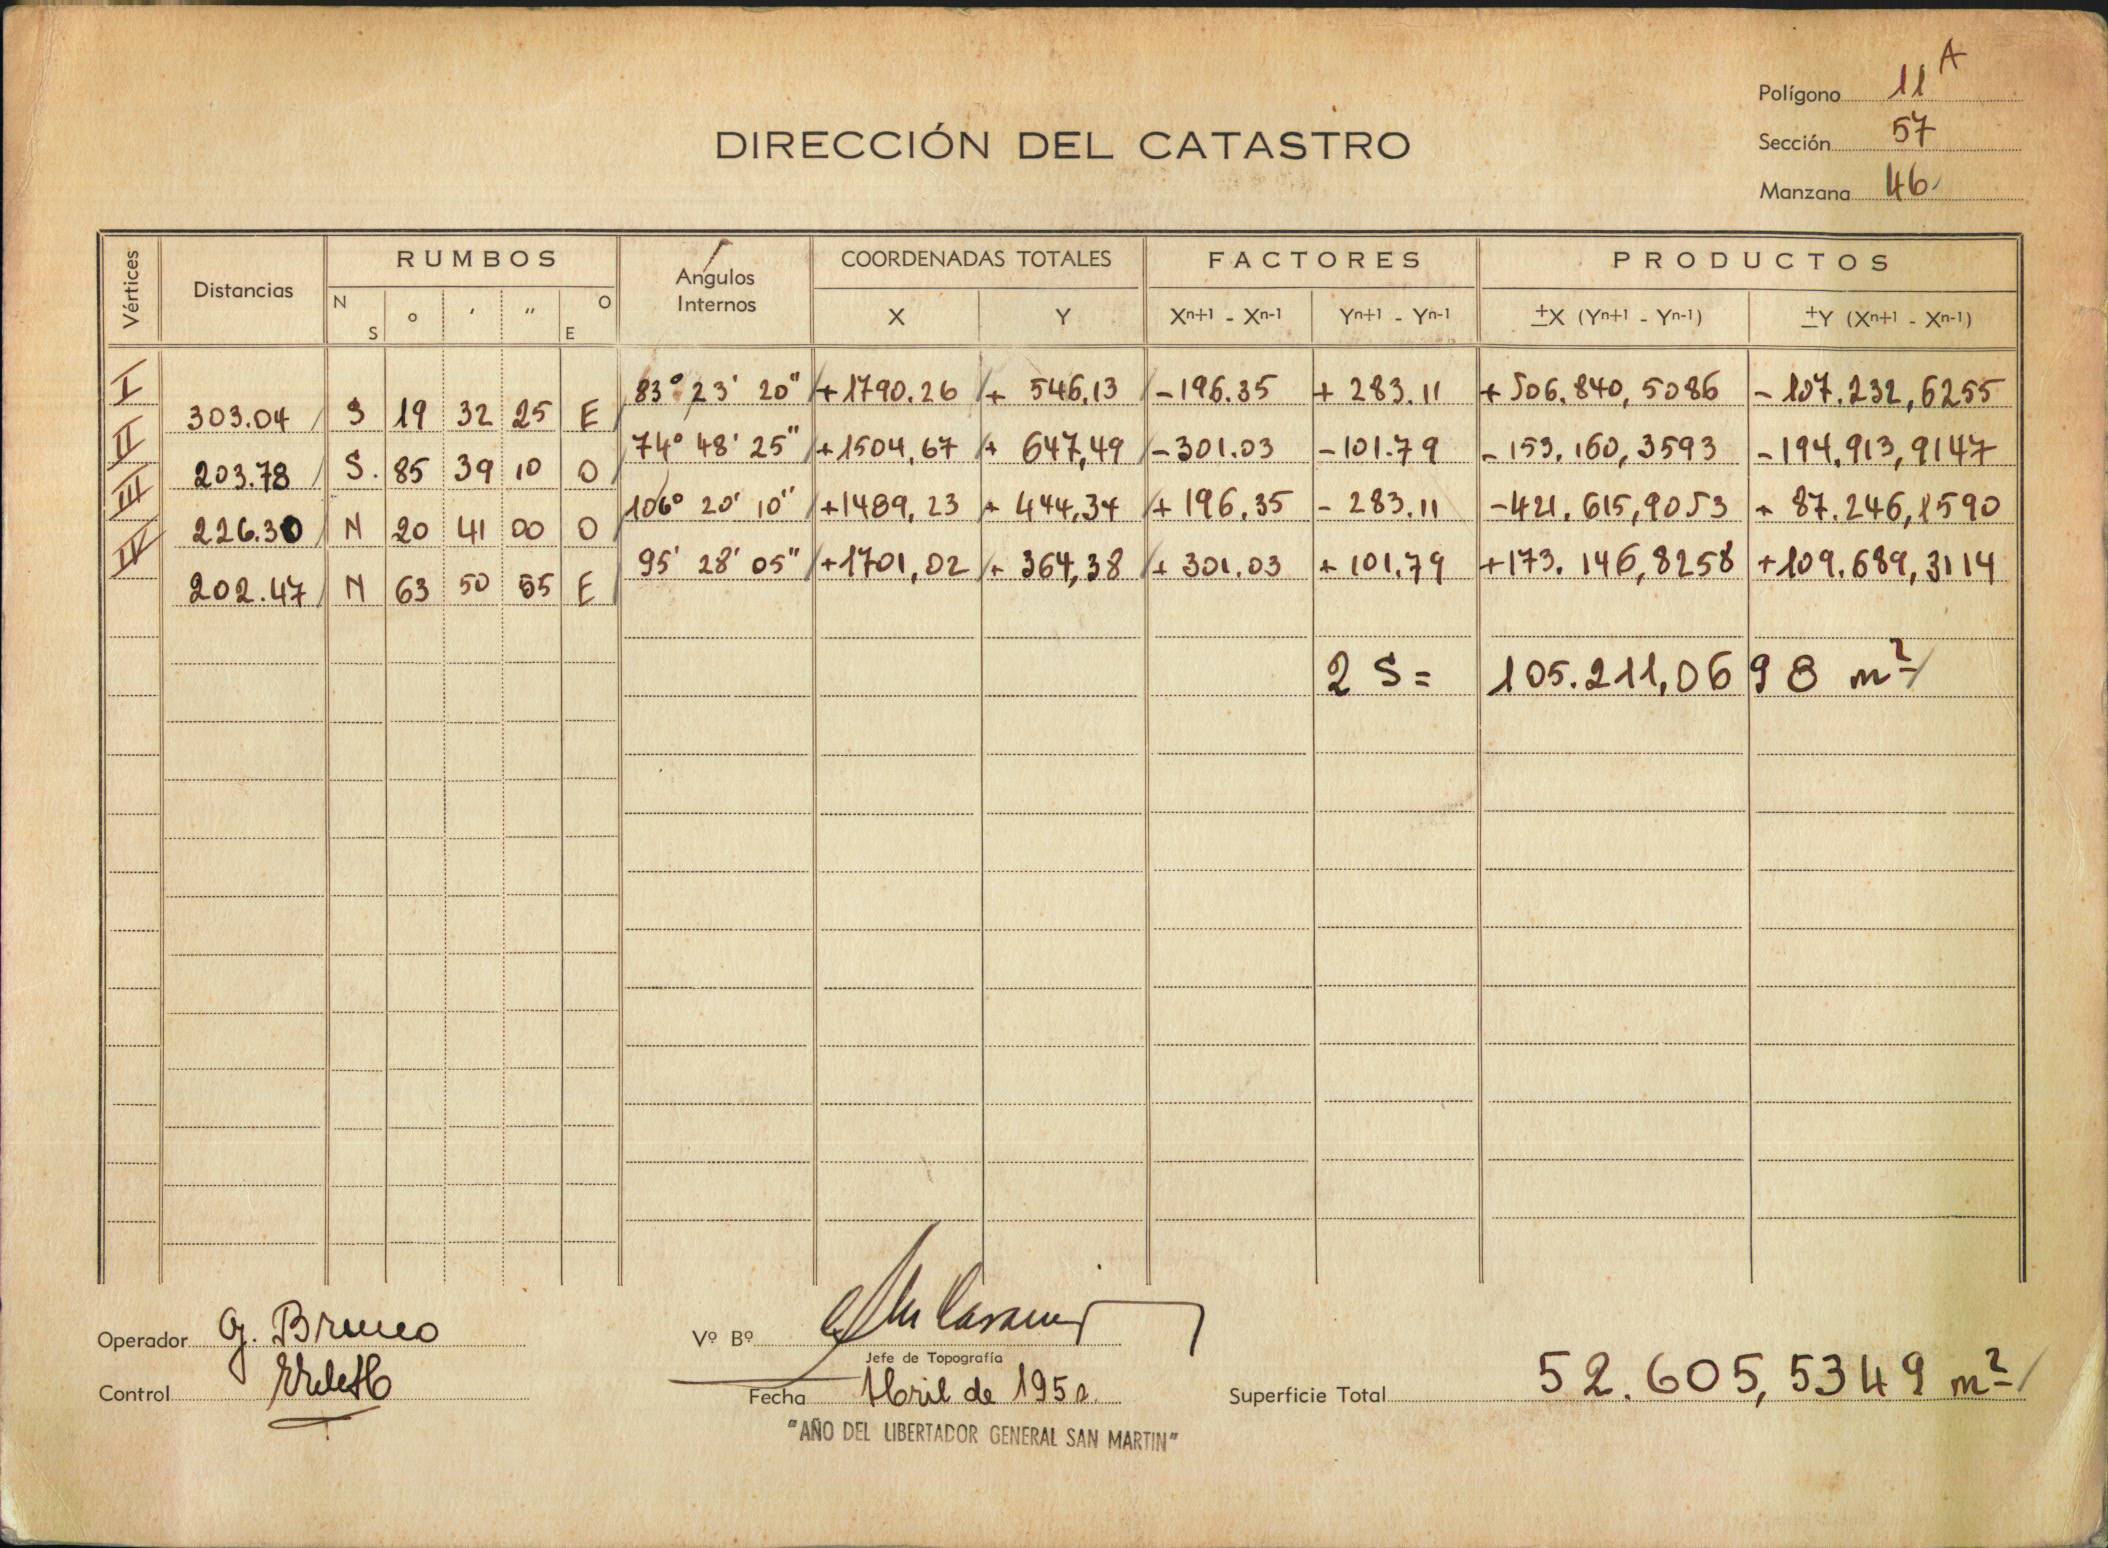 Polígono 11 A
Sección 57
Manzana 46
DIRECCIÓN DEL CATASTRO
Vértices Distancias RUMBOS Angulos Internos COORDENADAS TOTALES FACTORES PRODUCTOS
N S ° ' " O E X Y Xn+1 - Xn-1 Yn+1 - Yn-1 ±X (Yn+1 - Yn-1) ±Y (Xn+1 - Xn-1)
I 83° 23' 20" +1790.26 + 546,13 -196.35 + 283.11 +506.840,5086 -107.232,6255
303.04 S 19 32 25 E
II 74° 48' 25" +1504,67 + 647,49 -301.03 -101.79 -153.160,3593 -194.913,9147
203.78 S. 85 39 10 O
III 106° 20' 10" +1489,23 + 444,34 + 196,35 - 283.11 -421.615,9053 + 87.246,1590
226.30 N 20 41 00 O
IV 95' 28' 05" +1701,02 + 364,38 + 301.03 + 101.79 +173.146,8258 +109.689,3114
202.47 N 63 50 55 E
2 S = 105.211,0698 m2
Operador G. Bruno
Vº Bº
Jefe de Topografía
Control
Fecha Abril de 1950.
Superficie Total 52.605,5349 m2
"AÑO DEL LIBERTADOR GENERAL SAN MARTIN"